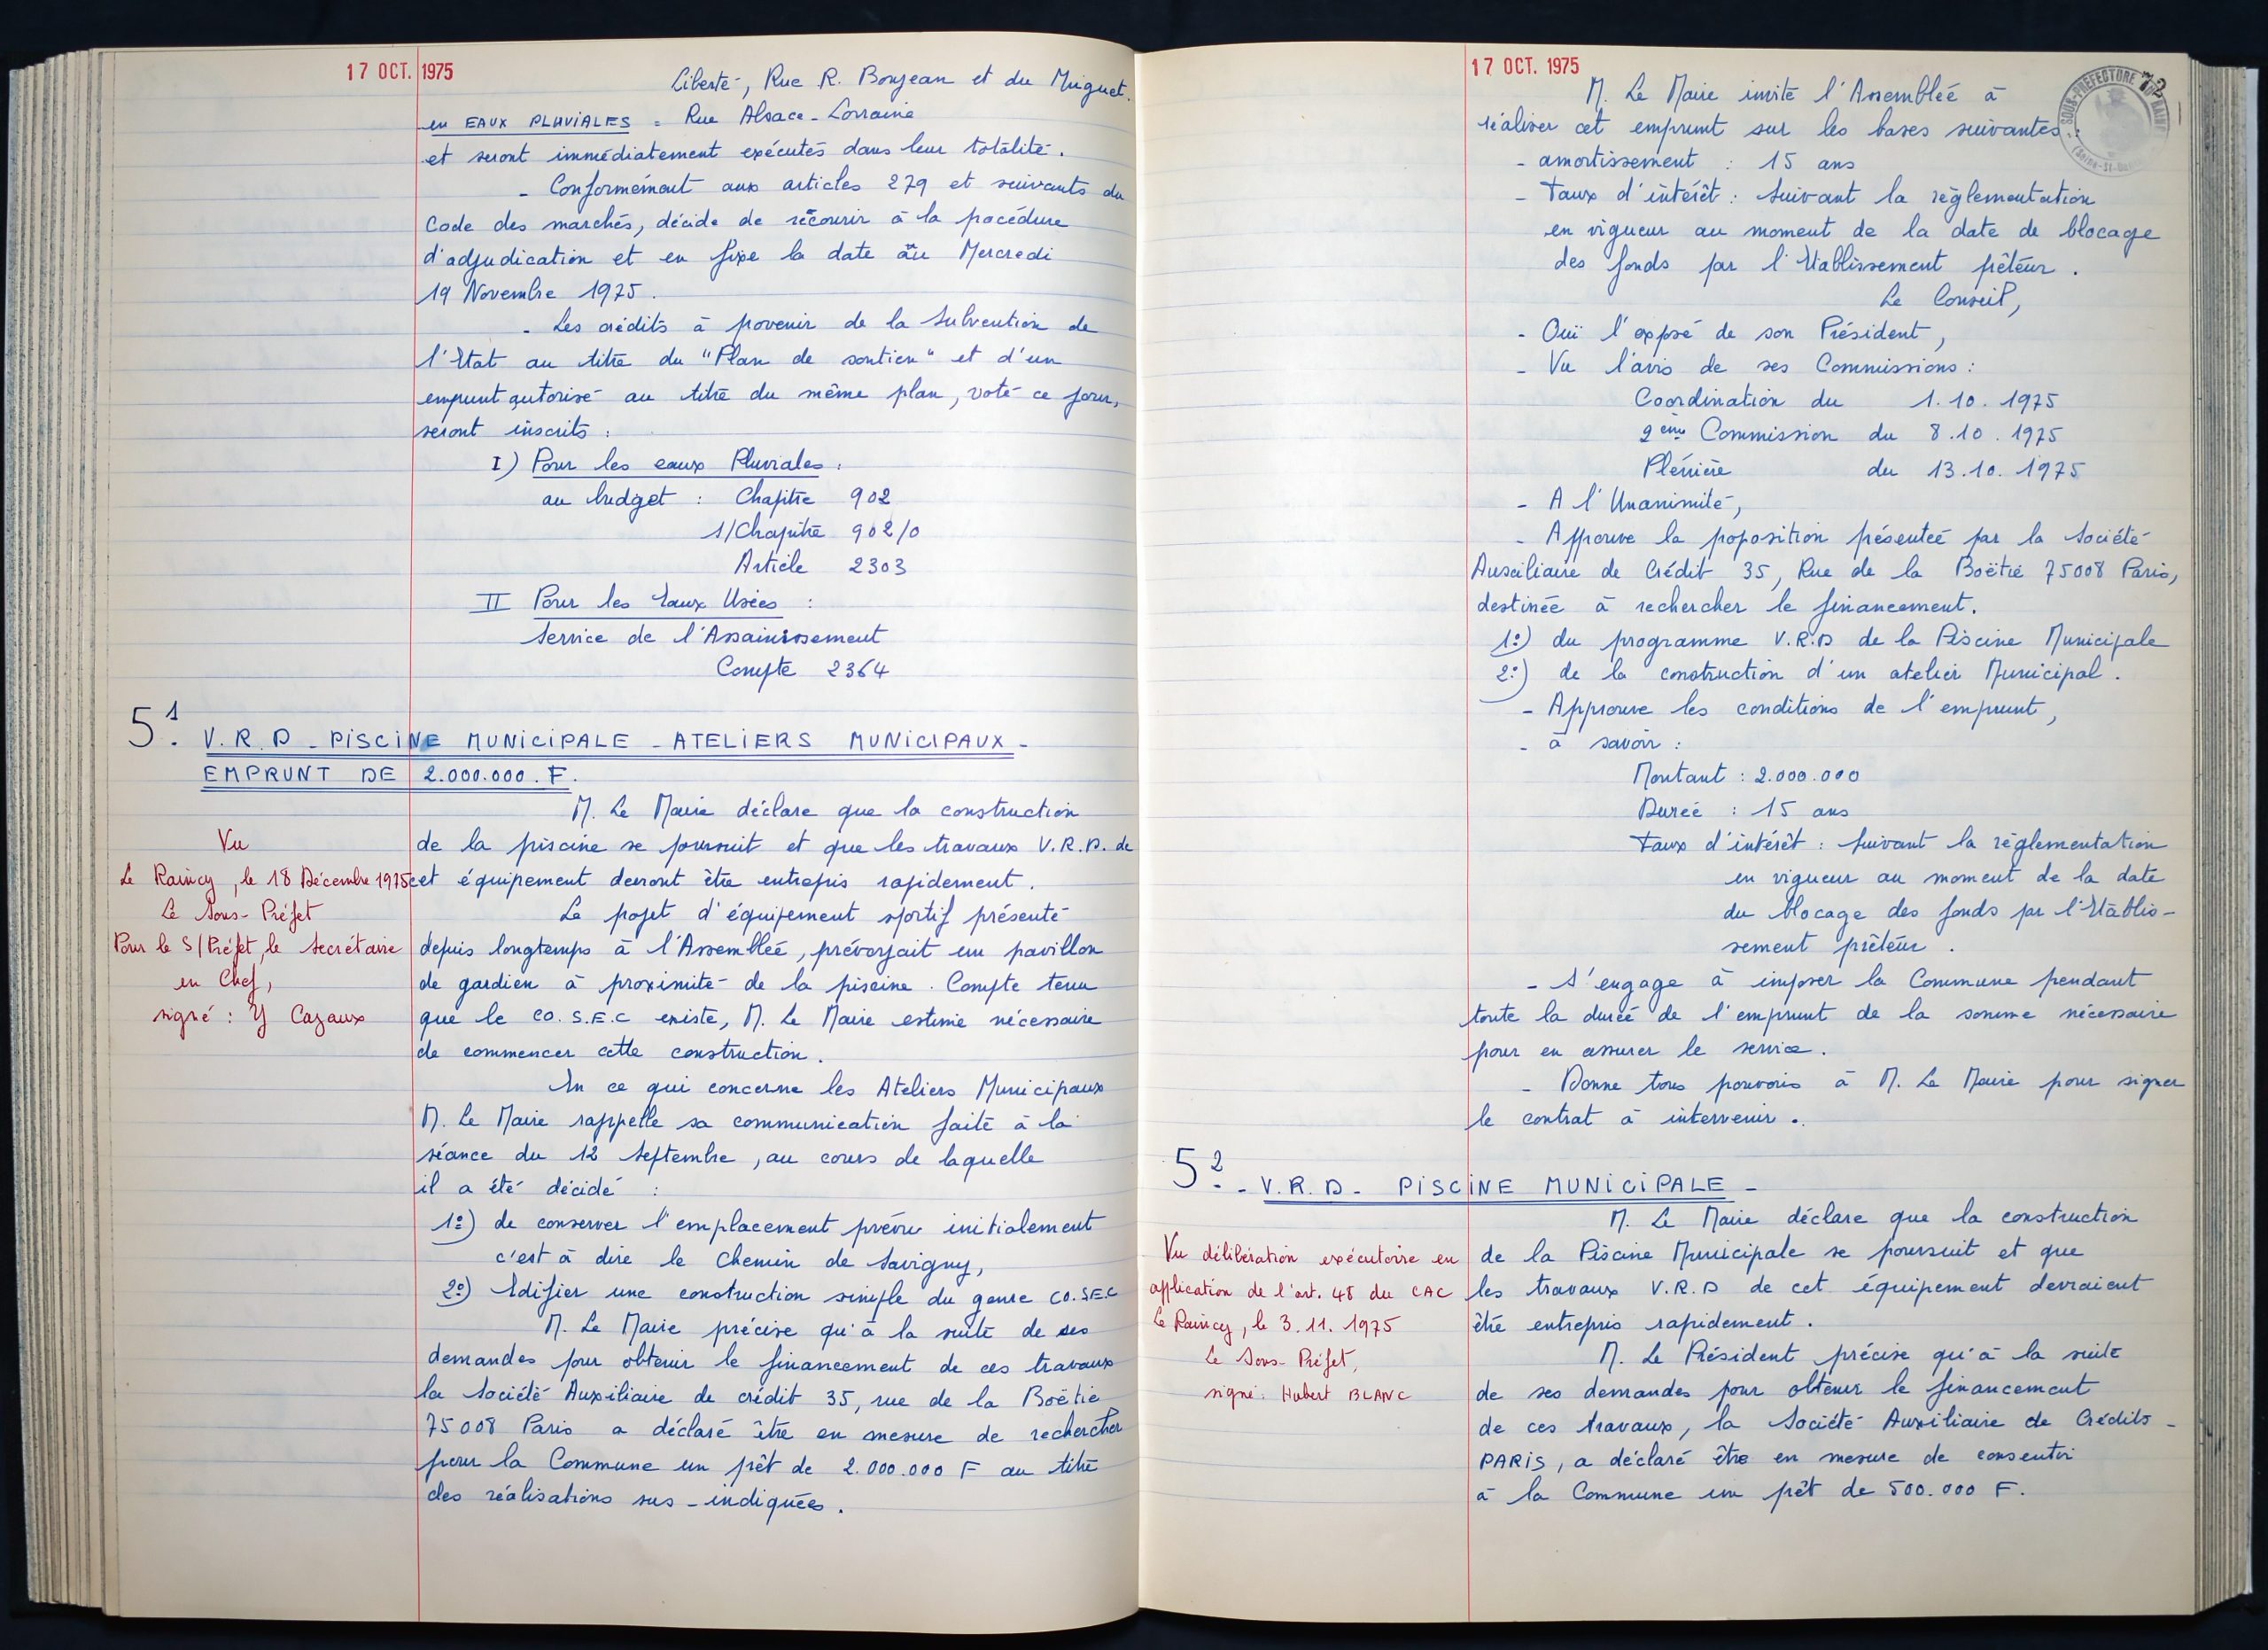 17 OCT. 1975
Liberté, Rue R. Bonjean et du Muguet.
en EAUX PLUVIALES = Rue Alsace-Lorraine
et seront immédiatement exécutés dans leur totalité.
- Conformément aux articles 279 et suivants du
Code des marchés, décide de recourir à la procédure
d'adjudication et en fixe la date au Mercredi
19 Novembre 1975.
- Les crédits à provenir de la Subvention de
l'Etat au titre du "Plan de soutien" et d'un
emprunt autorisé au titre du même plan, voté ce jour,
seront inscrits :
I) Pour les eaux Pluviales :
au budget : Chapitre 902
s/Chapitre 902/0
Article 2303
II Pour les Eaux Usées :
Service de l'Assainissement
Compte 2364
5.1 V.R.D - PISCINE MUNICIPALE - ATELIERS MUNICIPAUX -
EMPRUNT DE 2.000.000.F.
M. Le Maire déclare que la construction
de la piscine se poursuit et que les travaux V.R.D. de
cet équipement devront être entrepris rapidement.
Le projet d'équipement sportif présenté
depuis longtemps à l'Assemblée, prévoyait un pavillon
de gardien à proximité de la piscine. Compte tenu
que le CO.S.E.C existe, M. Le Maire estime nécessaire
de commencer cette construction.
En ce qui concerne les Ateliers Municipaux
M. Le Maire rappelle sa communication faite à la
séance du 12 Septembre, au cours de laquelle
il a été décidé :
1º) de conserver l'emplacement prévu initialement
c'est à dire le Chemin de Savigny,
2º) Edifier une construction simple du genre CO.SE.C
M. Le Maire précise qu'à la suite de ses
demandes pour obtenir le financement de ces travaux
la Société Auxiliaire de crédit 35, rue de la Boëtie
75008 Paris a déclaré être en mesure de rechercher
pour la Commune un prêt de 2.000.000 F au titre
des réalisations sus-indiquées.
Vu
Le Raincy, le 18 Décembre 1975
Le Sous-Préfet
Pour le S/Préfet, le Secrétaire
en Chef,
signé : Y Cazaux
17 OCT. 1975
72
SOUS-PREFECTURE
M. Le Maire invite l'Assemblée à
réaliser cet emprunt sur les bases suivantes :
- amortissement : 15 ans
- Taux d'intérêt : Suivant la règlementation
en vigueur au moment de la date de blocage
des fonds par l'Etablissement prêteur.
Le Conseil,
- Ouï l'exposé de son Président,
- Vu l'avis de ses Commissions :
Coordination du 1.10.1975
2ème Commission du 8.10.1975
Plénière du 13.10.1975
- A l'Unanimité,
- Approuve la proposition présentée par la Société
Auxiliaire de Crédit 35, Rue de la Boëtie 75008 Paris,
destinée à rechercher le financement.
1º) du programme V.R.D de la Piscine Municipale
2º) de la construction d'un atelier Municipal.
- Approuve les conditions de l'emprunt,
- à savoir :
Montant : 2.000.000
Durée : 15 ans
Taux d'intérêt : Suivant la règlementation
en vigueur au moment de la date
du blocage des fonds par l'Etablis-
sement prêteur.
- S'engage à imposer la Commune pendant
toute la durée de l'emprunt de la somme nécessaire
pour en assurer le service.
- Donne tous pouvoirs à M. Le Maire pour signer
le contrat à intervenir.
5.2 - V.R.D - PISCINE MUNICIPALE -
M. Le Maire déclare que la construction
de la Piscine Municipale se poursuit et que
les travaux V.R.D de cet équipement devraient
être entrepris rapidement.
M. Le Président précise qu'à la suite
de ses demandes pour obtenir le financement
de ces travaux, la Société Auxiliaire de Crédits -
PARIS, a déclaré être en mesure de consentir
à la Commune un prêt de 500.000 F.
Vu délibération exécutoire en
application de l'art. 48 du CAC
Le Raincy, le 3.11.1975
Le Sous-Préfet,
signé : Hubert BLANC